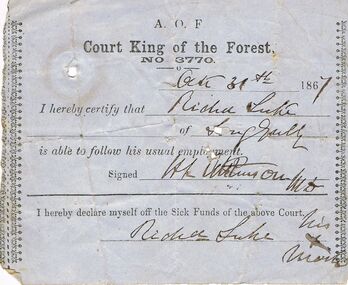 A. O. F
Court King of the Forest,
NO 3770.
Oct 31th 1867
I hereby certify that Richd Luke
of Long Gully
is able to follow his usual employment.
Signed H L Atkinson MD
I hereby declare myself off the Sick Funds of the above Court,
Richd Luke his
x
Mark